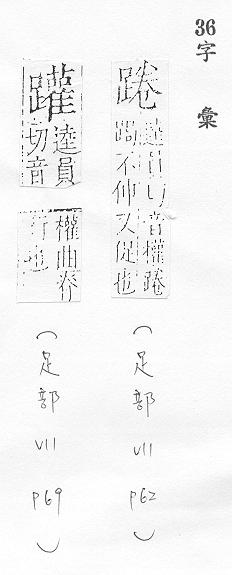 36字彙
踡
逵員切音權踡
跼不伸又促也
(足部 VII P62)
躍
逵員
切音
權曲脊
行也
(足部 VII P69)